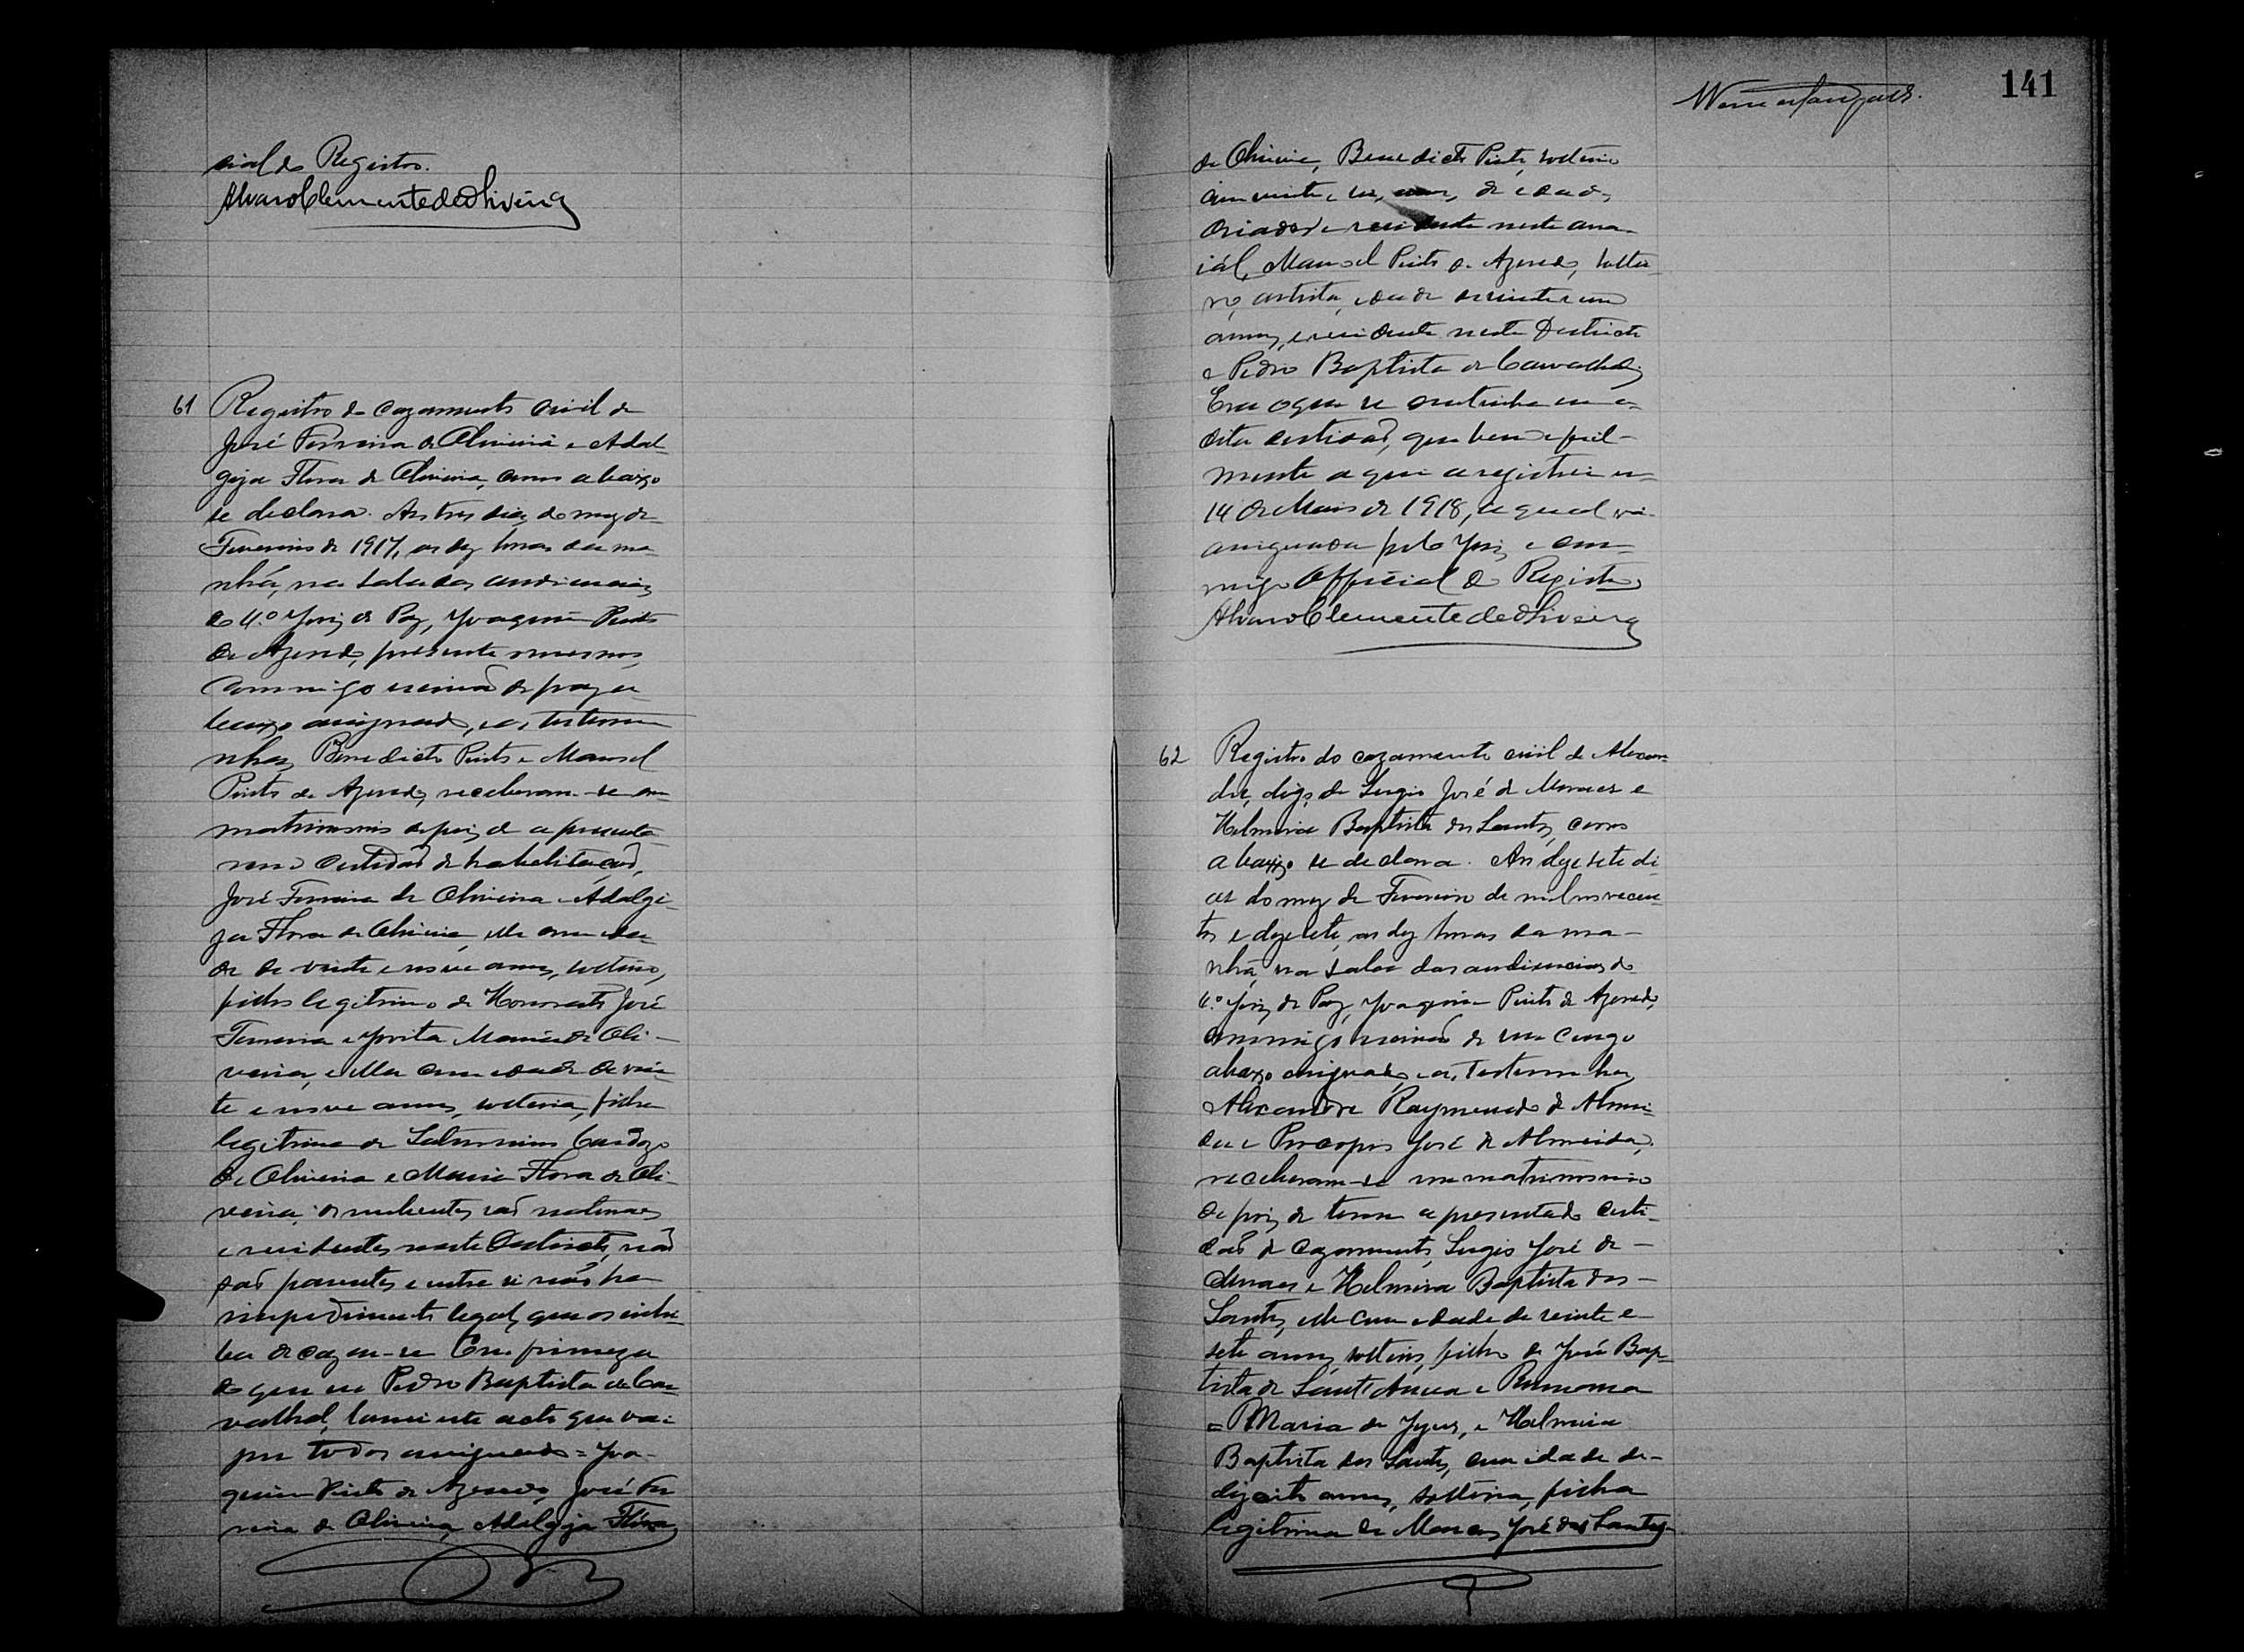 cial do Registro.
Alvaro Clemente de Oliveira
61 Registro do cazamento civil de
José Ferreira de Oliveira e Adal-
giza Flora de Oliveira, como abaixo
se declara. Aos tres dias do mez de
Fevereiro de 1917, as dez horas da ma-
nhã, na sala das audiencias
do 4.º Juiz de Paz, Joaquim Pinto
de Azevedo, presente o mesmo,
commigo escrivão de paz a-
baixo assignado, e as testemu-
nhas Benedicto Pinto e Manoel
Pinto de Azevedo, receberam-se em
matrimonio depois de apresenta-
rem certidão de habelitação,
José Ferreira de Oliveira e Adalgi-
za Flora de Oliveira, elle com eda-
de de vinte e nove annos, solteiro,
filho legitimo de Honorato José
Ferreira e Maria de Oli-
veira, e ella com edade de vin-
te e nove annos, solteria, filha
legitima de Saturnino Cardozo
de Oliveira e Maria Flora de Oli-
veira; os nubentes são naturaes
e residentes neste Destricto, não
são parentes e entre si não ha
impedimento legal, que os inhi-
ba de cazar-se. Em firmeza
do que eu Pedro Baptista de Car-
valhal, lavrei este acto que vai
por todos assignado = Joa-
quim Pinto de Azevedo, José Fer
reira de Oliveira, Adalgiza Flora
141
de Oliveira, Benedicto Pinto, solteiro
com vinte e seis annos, de edade,
criador e residente neste arra-
ial, Manoel Pinto de Azevedo, soltei-
ro, artista, edade de vinte e um
annos, e residente neste Destricto
e Pedro Baptista de Carvalhal.
Era o que se continha em a
dita certidão, que bem e fiel-
mente aqui a registrei em
14 de Maio de 1918, a qual vai
assignada pelo Juiz e com-
migo Official do Registro
Alvaro Clemente de Oliveira
62 Registro do cazamento civil de Alexan-
dre, digo, de Sergio José de Moraes e
Helmira Baptista dos Santos, como
abaixo se declara. Aos dezesete di-
as do mez de Fevereiro de mil novecen-
tos e dezesete, as dez horas da ma-
nhã, na sala das audiencias do
4.º Juiz de Paz, Joaquim Pinto de Azevedo,
commigo escrivão de seu cargo
abaixo assignado, e as testemunhas
Alexandre Raymundo de Almei-
da e Procopio José de Almeida,
receberam-se em matrimonio
depois de terem apresentado certi-
dão de cazamento, Sergio José de
Moraes e Helmira Baptista dos
Santos, elle com edade de vinte e
sete annos, solteiro, filho de José Bap-
tista de Sant'Anna e Ramona
= Maria de Jezus, e Helmira
Baptista dos Santos, com idade de
dezoito annos, solteira, filha
legitima de Marcos José dos Santos